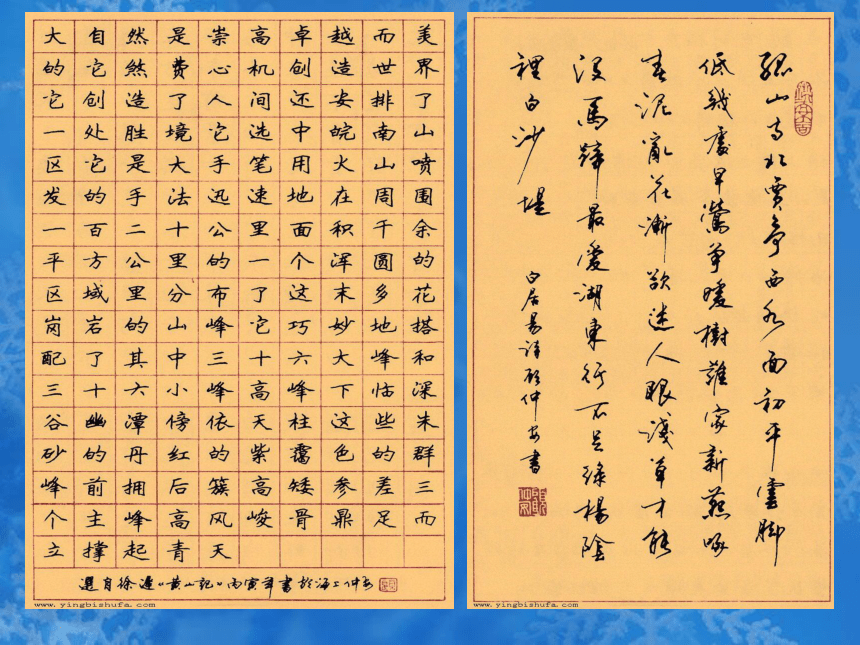 大自然是崇高卓越而美
的它煞费心机创造世界
它创造了人间还安排了
一处胜境它选中皖南山
区它是大手笔用火山喷
发的手法迅速地在周围
一百二十公里面积千余
平方公里的一个浑圆的
区域里分布了这末多花
岗岩的山峰它巧妙地搭
配了其中三十六大峰和
三十六小峰高峰下临深
谷幽潭傍依天柱这些朱
砂的丹红的紫霭色的群
峰前拥后簇高矮参差三
个主峰高风峻骨鼎足而
立撑起青天
選自徐遲《黄山記》丙寅年書於海上仲安
www.yingbishufa.com
孤山寺北賈亭西水面初平雲腳
低幾處早鶯爭暖樹誰家新燕啄
春泥亂花漸欲迷人眼淺草才能
沒馬蹄最愛湖東行不足綠楊陰
裡白沙堤
白居易詩顧仲安書
www.yingbishufa.com